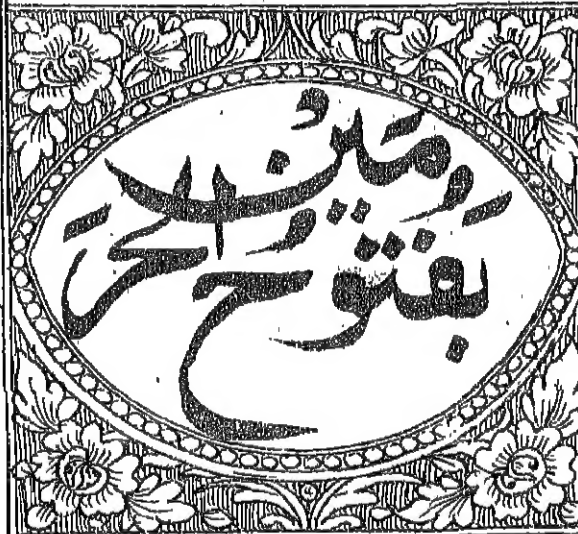 بفتوح الحرمین